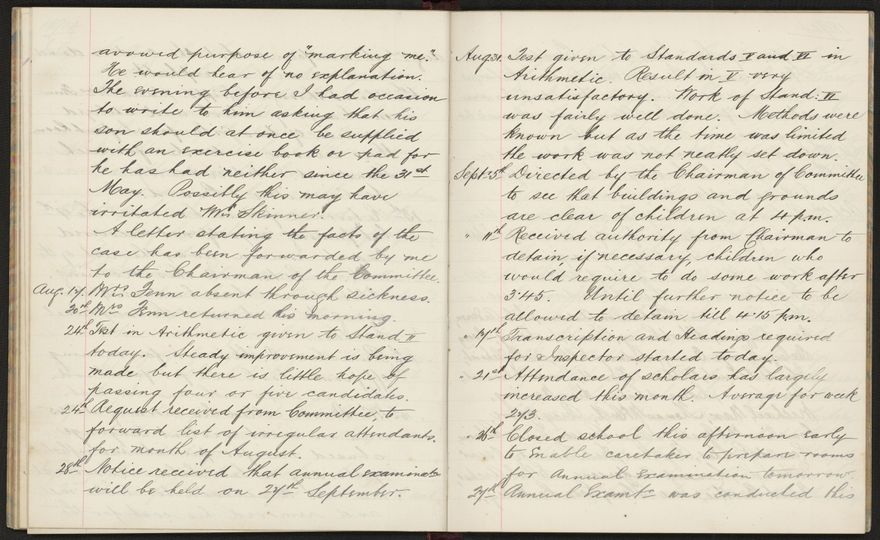 avowed purpose of "marking me".
He would hear of no explanation.
The evening before I had occasion
to write to him asking that his
son should at once be supplied
with an exercise book or pad for
he has had neither since the 31st
May. Possibly this may have
irritated Mrs Skinner.
A letter stating the facts of the
case has been forwarded by me
to the Chairman of the Committee.
Aug. 17. Mrs Fenn absent through sickness.
20th Mrs Fenn returned this morning.
24th Test in Arithmetic given to Stand II
today. Steady improvement is being
made but there is little hope of
passing four or five candidates.
24th Request received from Committee to
forward list of irregular attendants
for month of August.
28th Notice received that annual examinatn
will be held on 27th September.
Aug 31. Test given to Standards V and VI in
Arithmetic. Result in V very
unsatisfactory. Work of Stand: VI
was fairly well done. Methods were
known but as the time was limited
the work was not neatly set down.
Sept. 5th Directed by the Chairman of Committee
to see that buildings and grounds
are clear of children at 4 p.m.
" 11th Received authority from Chairman to
detain if necessary children who
would require to do some work after
3.45. Until further notice to be
allowed to detain till 4.15 p.m.
" 17th Transcription and Headings required
for Inspector started today.
" 21st Attendance of scholars has largely
increased this month. Average for week
273.
" 26th Closed school this afternoon early
to enable caretaker to prepare rooms
for Annual Examination tomorrow.
27th Annual Examtn was conducted this